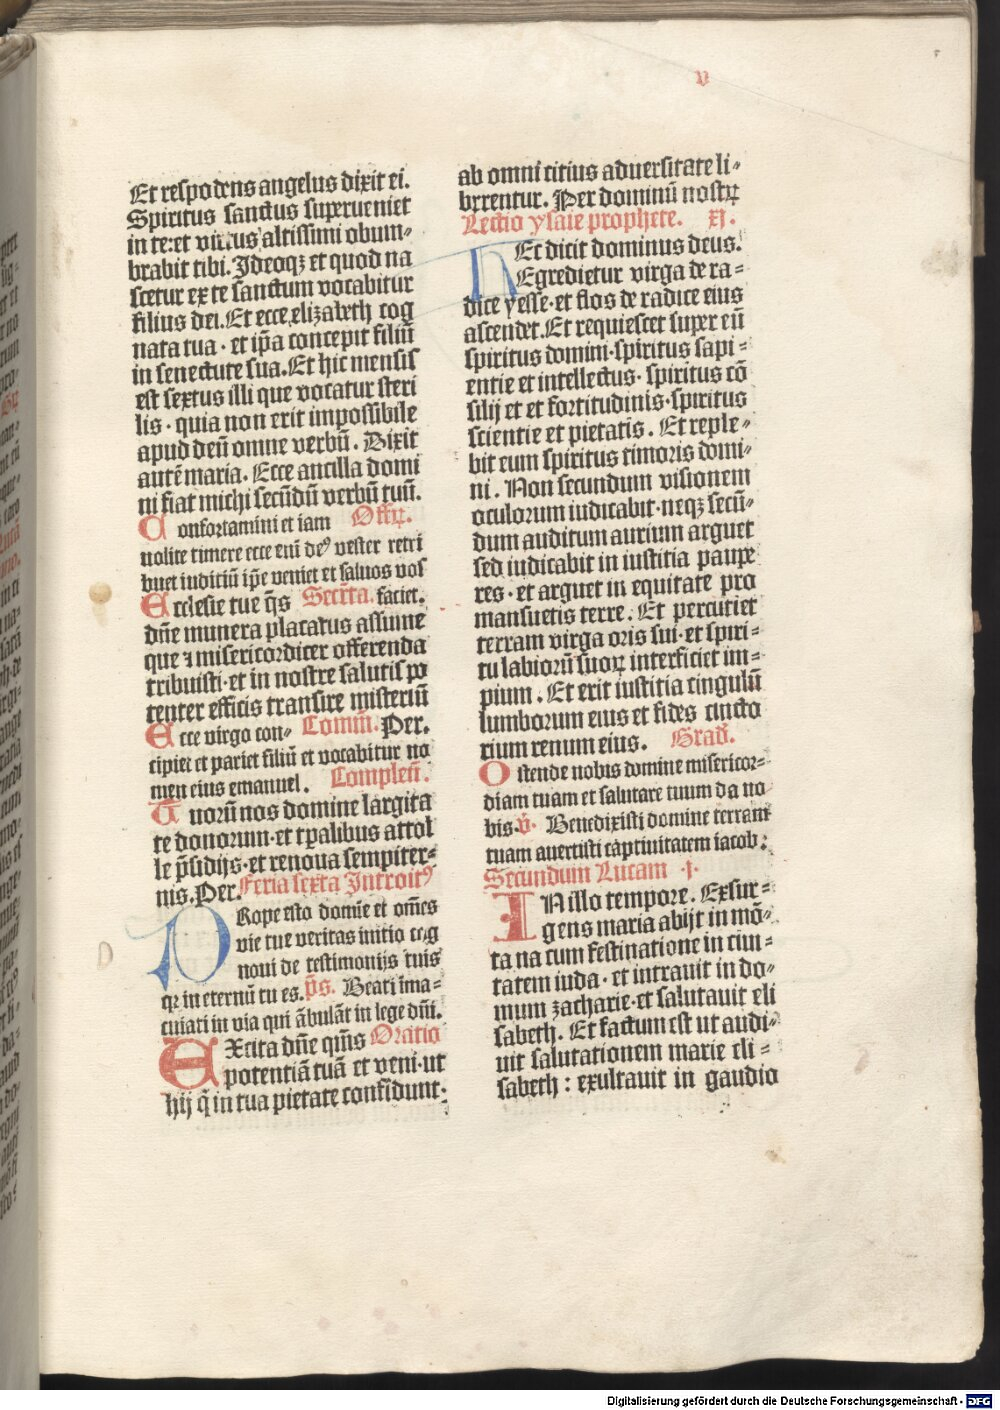 v
Et respodens angelus dixit ei.
Spiritus sanctus superueniet
in te:et virtus altissimi obum-
brabit tibi. Ideoqz et quod na
scetur ex te sanctum vocabitur
filius dei. Et ecce elizabeth cog
nata tua · et ip̄a concepit filiū
in senectute sua. Et hic mensis
est sextus illi que vocatur steri
lis · quia non erit impossibile
apud deū omne verbū. Dixit
autē maria. Ecce ancilla domi
ni fiat michi secūdū verbū tuū.
Confortamini et iam Offꝝ.
nolite timere ecce eni deꝰ vester retri
buet iuditiū ip̄e veniet et saluos vos
Ecclesie tue q̄s Secr̄ta. faciet.
dn̄e munera placatus assume
que ⁊ misericordicer offerenda
tribuisti·et in nostre salutis po
tenter efficis transire misteriū
Ecce virgo con- Com̄. Per.
cipiet et pariet filiū et vocabitur no
men eius emanuel. Complen̄.
Tuorū nos domine largita
te donorum·et tp̄alibus attol
le p̄sidijs·et renoua sempiter-
nis. Per. Feria sexta Introitꝰ
PRope esto domīe et om̄es
vie tue veritas initio cog
noui de testimonijs tuis
qꝛ in eternū tu es. p̄s. Beati ima-
culati in via qui ābulāt in lege dn̄i.
EXcita dn̄e qm̄s Oratio
potentiā tuā et veni·ut
hij q̄ in tua pietate confidunt·
ab omni citius aduersitate li-
brentur. Per dominū nostꝝ
Lectio ysaie prophete. xj.
HEc dicit dominus deus.
Egredietur virga de ra-
dice yesse·et flos de radice eius
ascendet. Et requiescet super eū
spiritus domini·spiritus sapi-
entie et intellectus· spiritus cō
silij et et fortitudinis·spiritus
scientie et pietatis. Et reple-
bit eum spiritus timoris domi-
ni. Non secundum visionem
oculorum iudicabit·neqz secū-
dum auditum aurium arguet
sed iudicabit in iustitia paupe
res·et arguet in equitate pro
mansuetis terre. Et percutiet
terram virga oris sui·et spiri-
tu labiorū suoꝝ interficiet im-
pium. Et erit iustitia cingulū
lumborum eius et fides cincto
rium renum eius. Grad̄.
Ostende nobis domine misericor-
diam tuam et salutare tuum da no
bis. v̄. Benedixisti domine terram
tuam auertisti captiuitatem iacob:
Secundum Lucam ·i·
IN illo tempore. Exsur-
gens maria abijt in mō-
ta na cum festinatione in ciui-
tatem iuda·et intrauit in do-
mum zacharie·et salutauit eli
sabeth. Et factum est ut audi-
uit salutationem marie eli-
sabeth: exultauit in gaudio
Digitalisierung gefördert durch die Deutsche Forschungsgemeinschaft - DFG